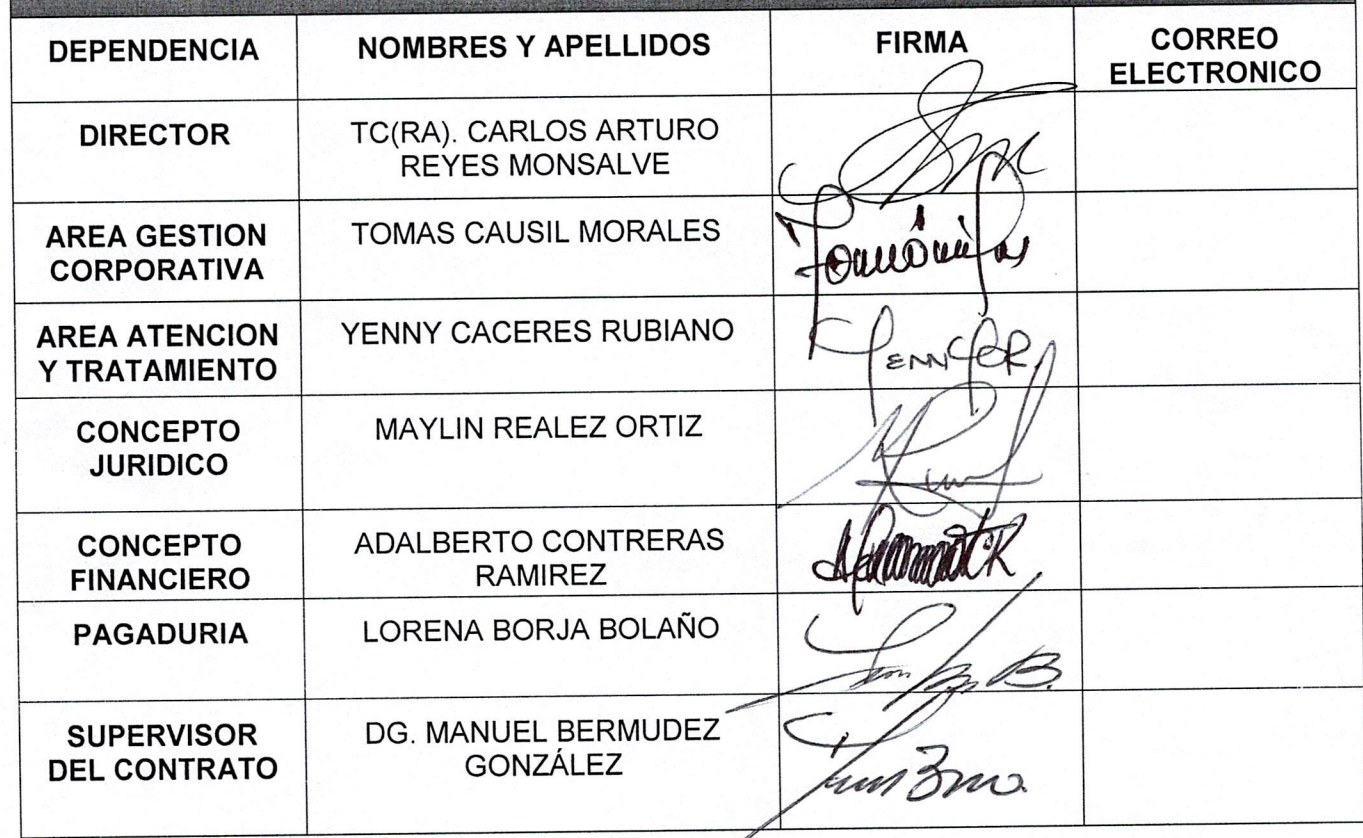 DEPENDENCIA
NOMBRES Y APELLIDOS
FIRMA
CORREO
ELECTRONICO
DIRECTOR
TC(RA). CARLOS ARTURO
REYES MONSALVE
AREA GESTION
CORPORATIVA
TOMAS CAUSIL MORALES
AREA ATENCION
Y TRATAMIENTO
YENNY CACERES RUBIANO
CONCEPTO
JURIDICO
MAYLIN REALEZ ORTIZ
CONCEPTO
FINANCIERO
ADALBERTO CONTRERAS
RAMIREZ
PAGADURIA
LORENA BORJA BOLAÑO
SUPERVISOR
DEL CONTRATO
DG. MANUEL BERMUDEZ
GONZÁLEZ